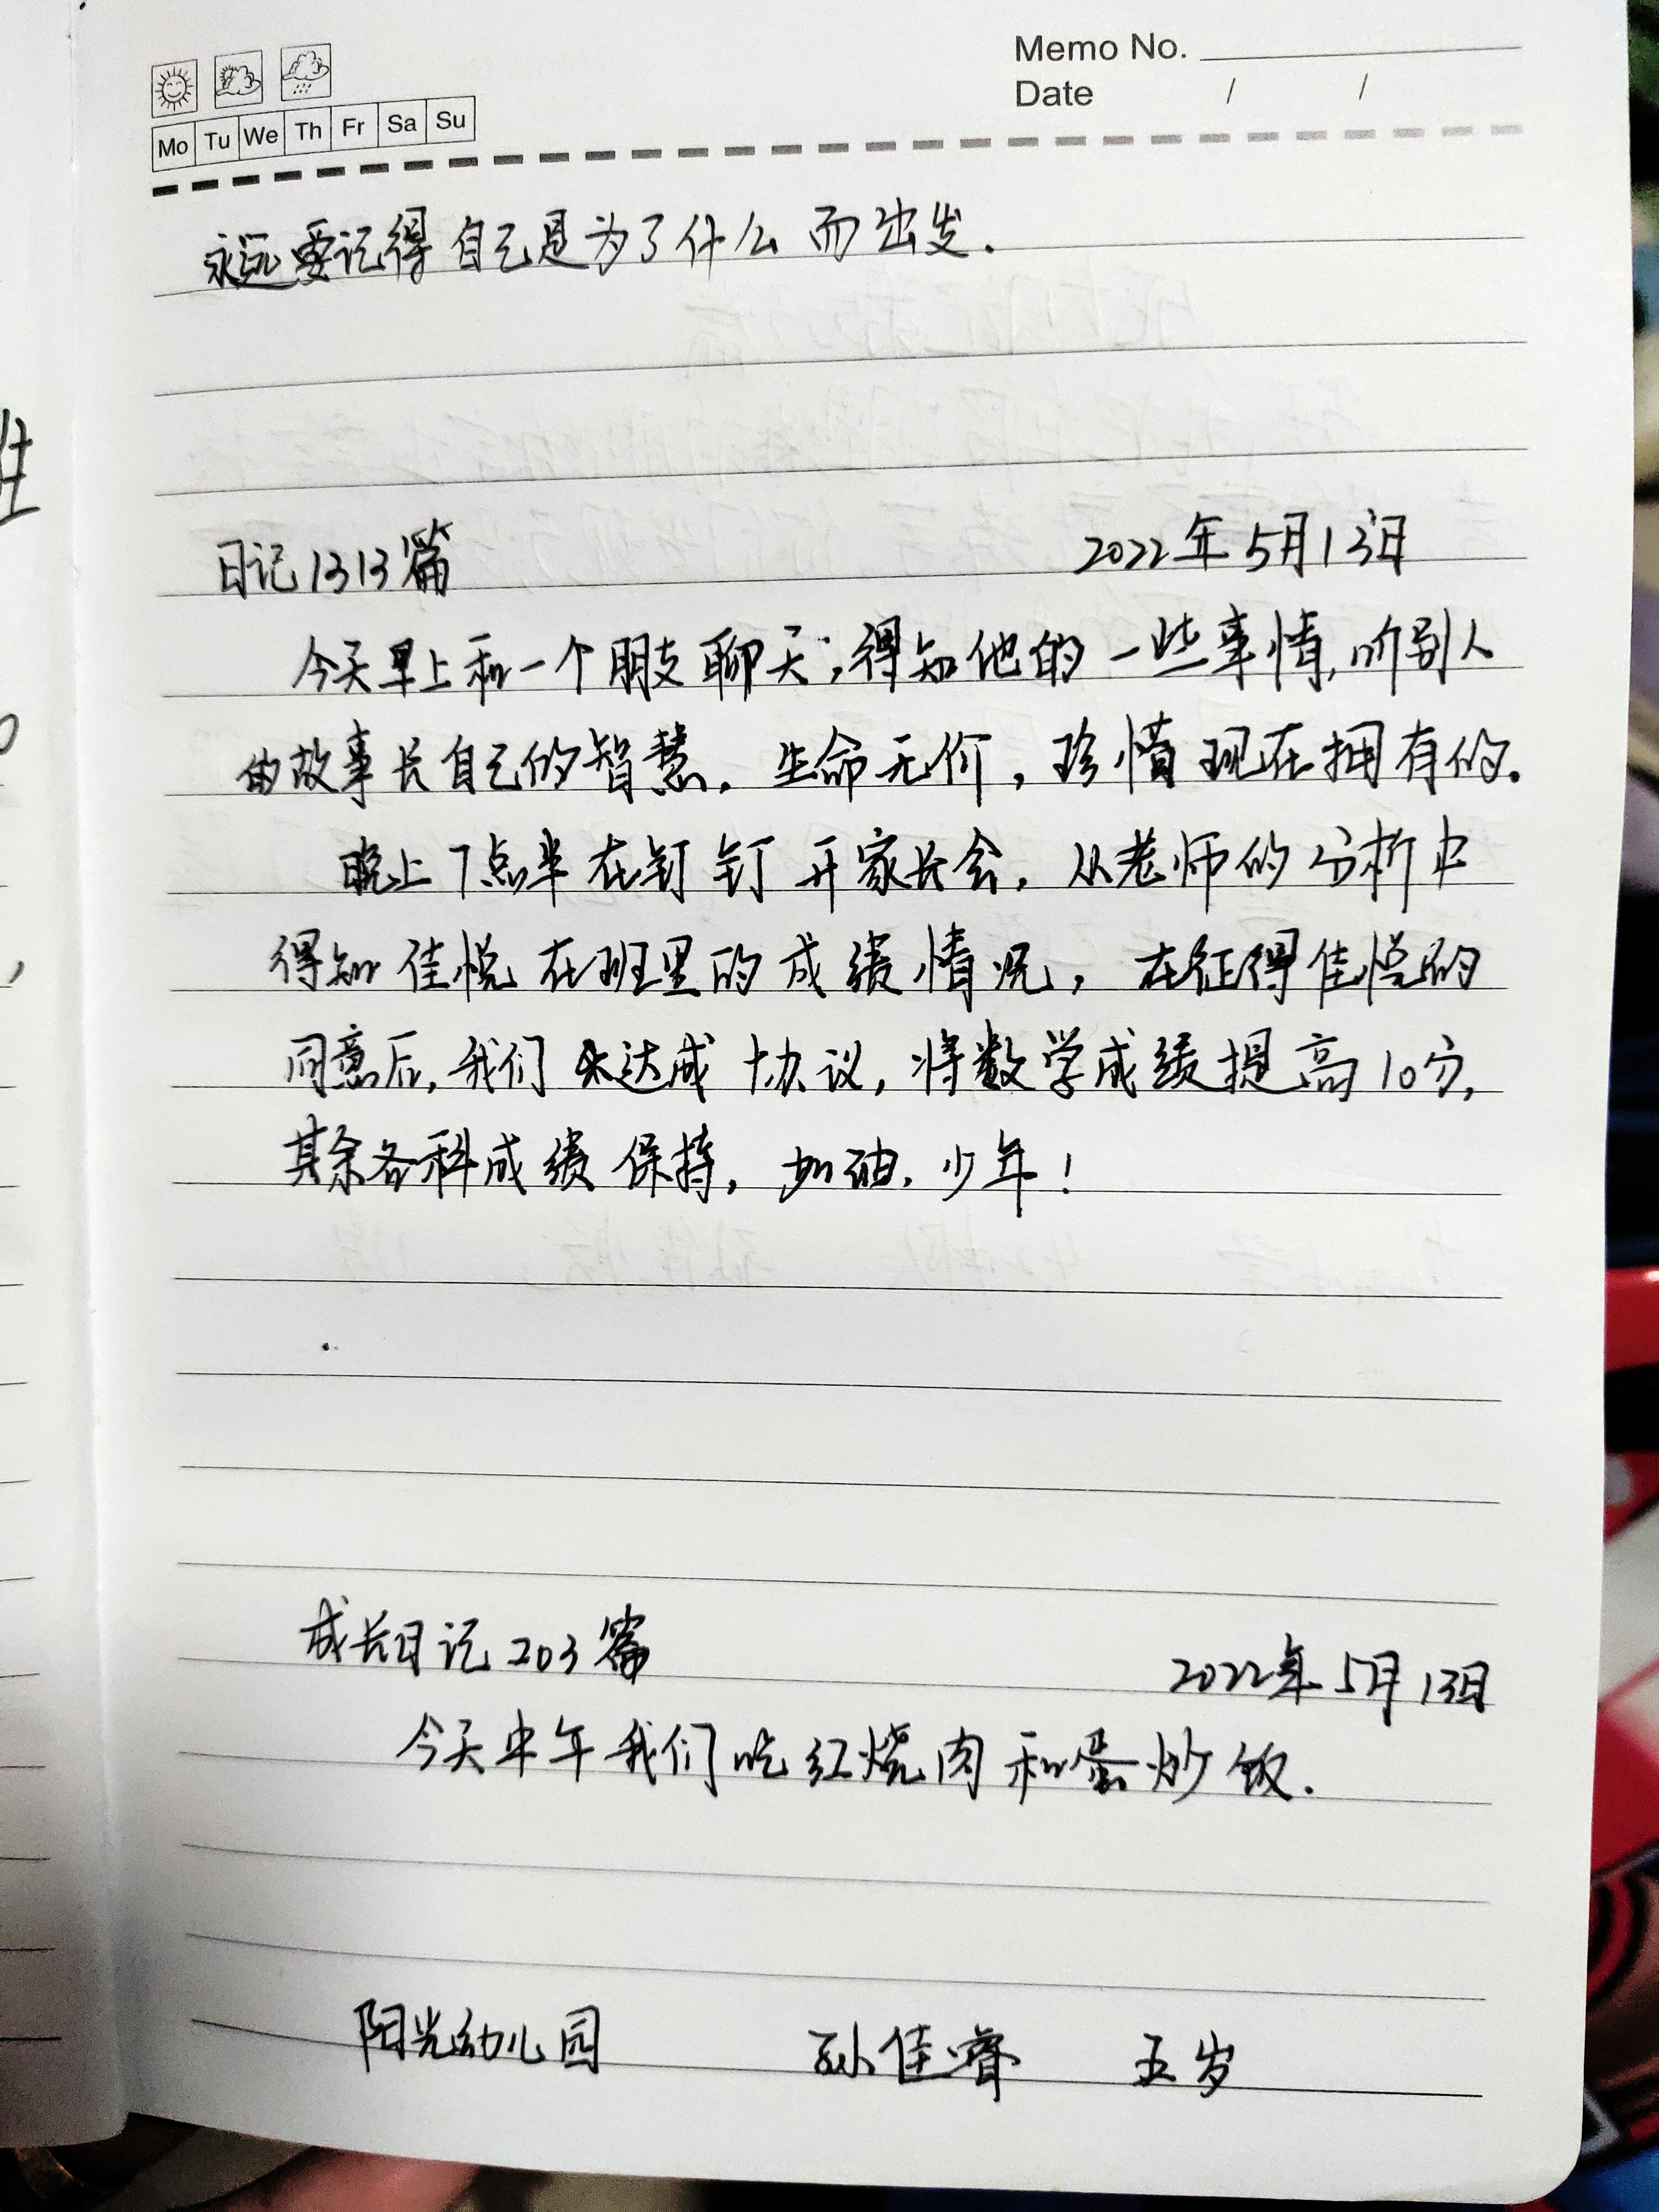 Memo No.
Date / /
Mo Tu We Th Fr Sa Su
永远要记得自己是为了什么而出发.
日记1313篇 2022年5月13日
今天早上和一个朋友聊天,得知他的一些事情,听别人
的故事长自己的智慧。生命无价,珍惜现在拥有的。
晚上7点半在钉钉开家长会,从老师的分析中
得知佳悦在班里的成绩情况,在征得佳悦的
同意后,我们达成协议,将数学成绩提高10分,
其余各科成绩保持,加油,少年!
成长日记203篇 2022年5月13日
今天中午我们吃红烧肉和蛋炒饭.
阳光幼儿园 孙佳睿 五岁